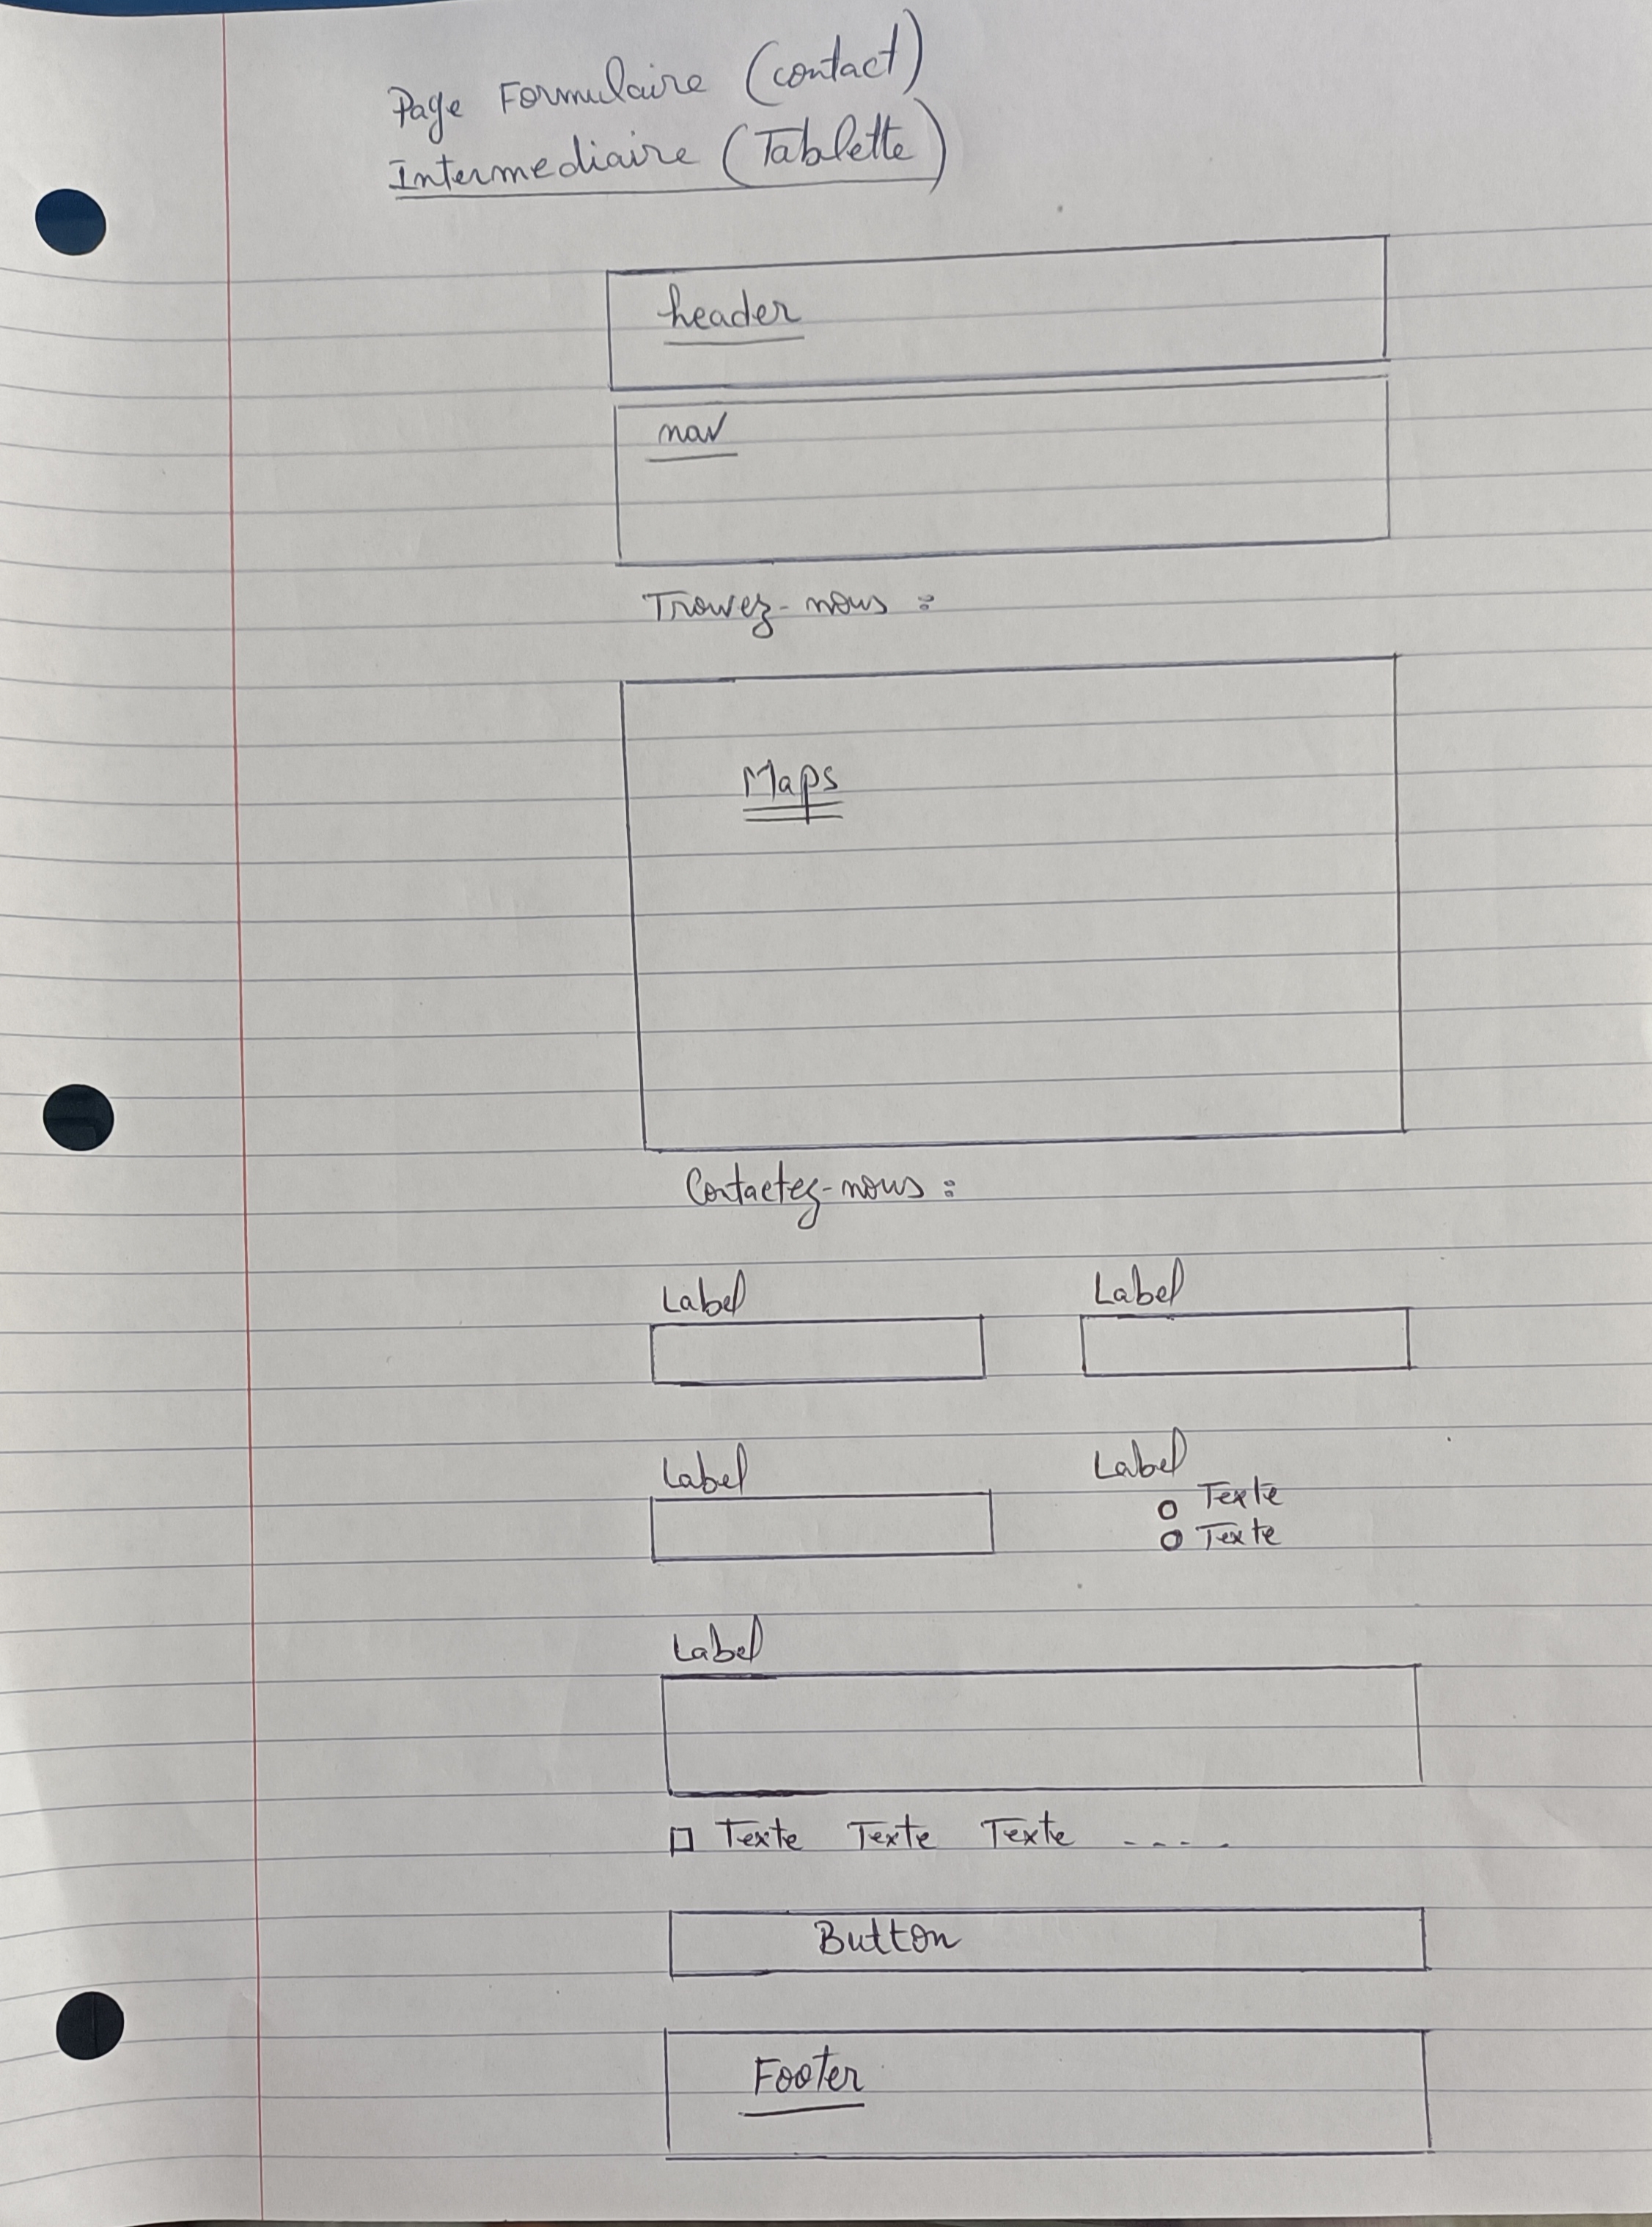 Page Formulaire (contact)
Intermediaire (Tablette)
header
nav
Trouvez-nous :
Maps
Contactez-nous :
Label Label
Label Label
Texte
Texte
Label
Texte Texte Texte - - - -
Button
Footer